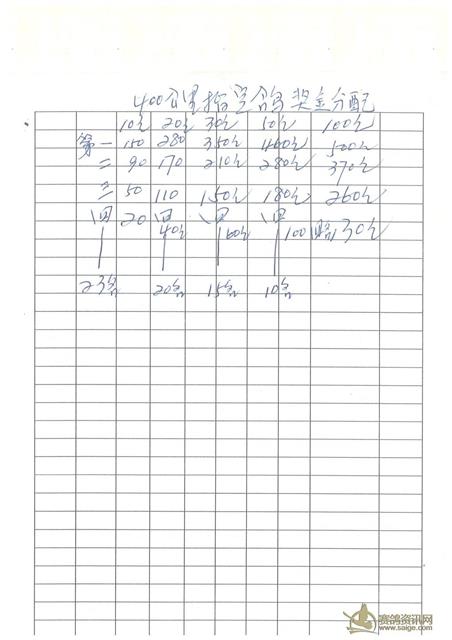 400公里指定鸽奖金分配
10元 20元 30元 50元 100元
第一 150 280 350元 460元 500元
二 90 170 210元 280元 370元
三 50 110 150元 180元 260元
四 20 四 四 四 四 130元
40元 60元 100
23名 20名 15名 10名
赛鸽资讯网
www.saige.com